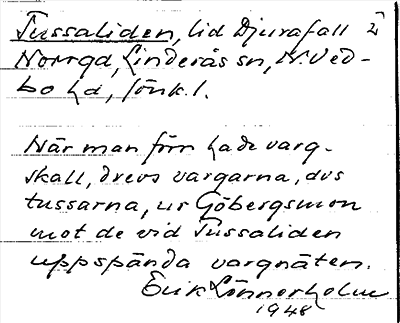 Tussaliden, lid Djurafall 2
Norrgd, Linderås sn, N. Ved-
bo hd, Jönk. l.
När man förr hade varg-
skall, drevs vargarna, dvs
tussarna, ur Göbergsmon
mot de vid Tussaliden
uppspända vargnäten.
Erik Lönnerholm
1948